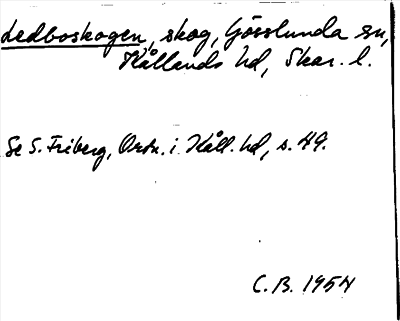 Ledboskogen, skog, Gösslunda sn,
Kållands hd, Skar. l.
Se S. Friberg, Ortn. i Kåll. hd, s. 49.
C.B. 1954